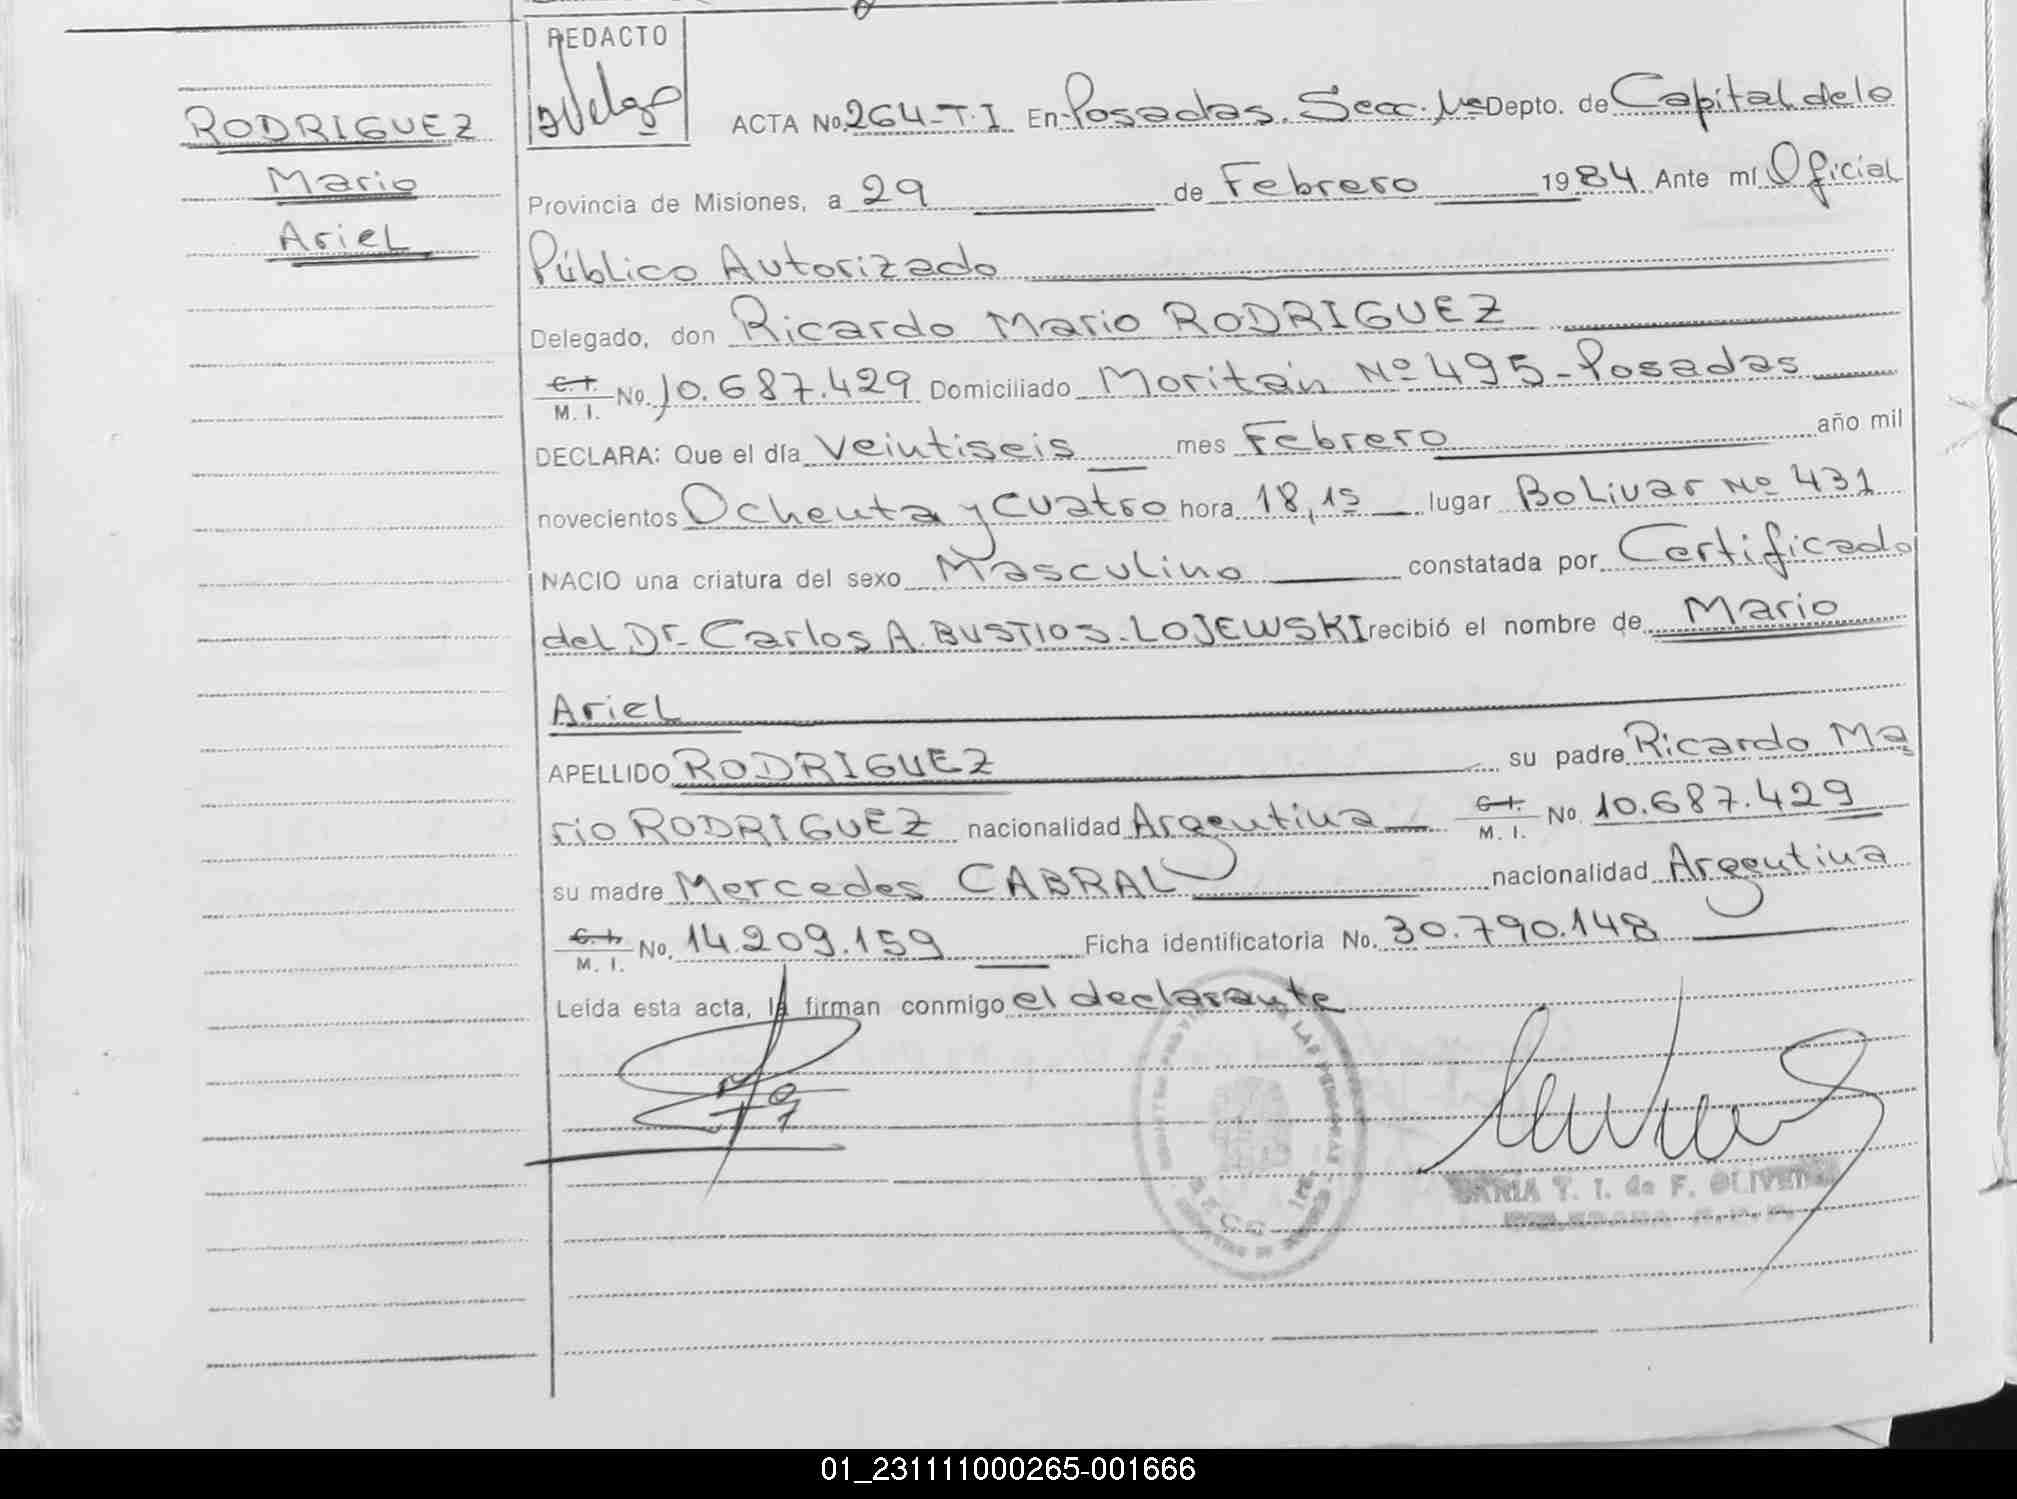 REDACTO
RODRIGUEZ
Mario
Ariel
ACTA No. 264-T.I En Posadas. Secc. 1ª Depto. de Capital de la
Provincia de Misiones, a 29 de Febrero 1984 Ante mí Oficial
Público Autorizado
Delegado, don Ricardo Mario RODRIGUEZ
C. I. M. I. No. 10.687.429 Domiciliado Moritán Nº 495-Posadas
DECLARA: Que el día Veintiseis mes Febrero año mil
novecientos Ochenta y cuatro hora 18,15 lugar Bolivar Nº 431
NACIO una criatura del sexo Masculino constatada por Certificado
del Dr. Carlos A. BUSTIOS-LOJEWSKI recibió el nombre de Mario
Ariel
APELLIDO RODRIGUEZ su padre Ricardo Ma
rio RODRIGUEZ nacionalidad Argentina C. I. M. I. No. 10.687.429
su madre Mercedes CABRAL nacionalidad Argentina
C. I. M. I. No. 14.209.159 Ficha identificatoria No. 30.790.148
Leída esta acta, la firman conmigo el declarante
MARIA T. I. de F. OLIVEIRA
01_231111000265-001666